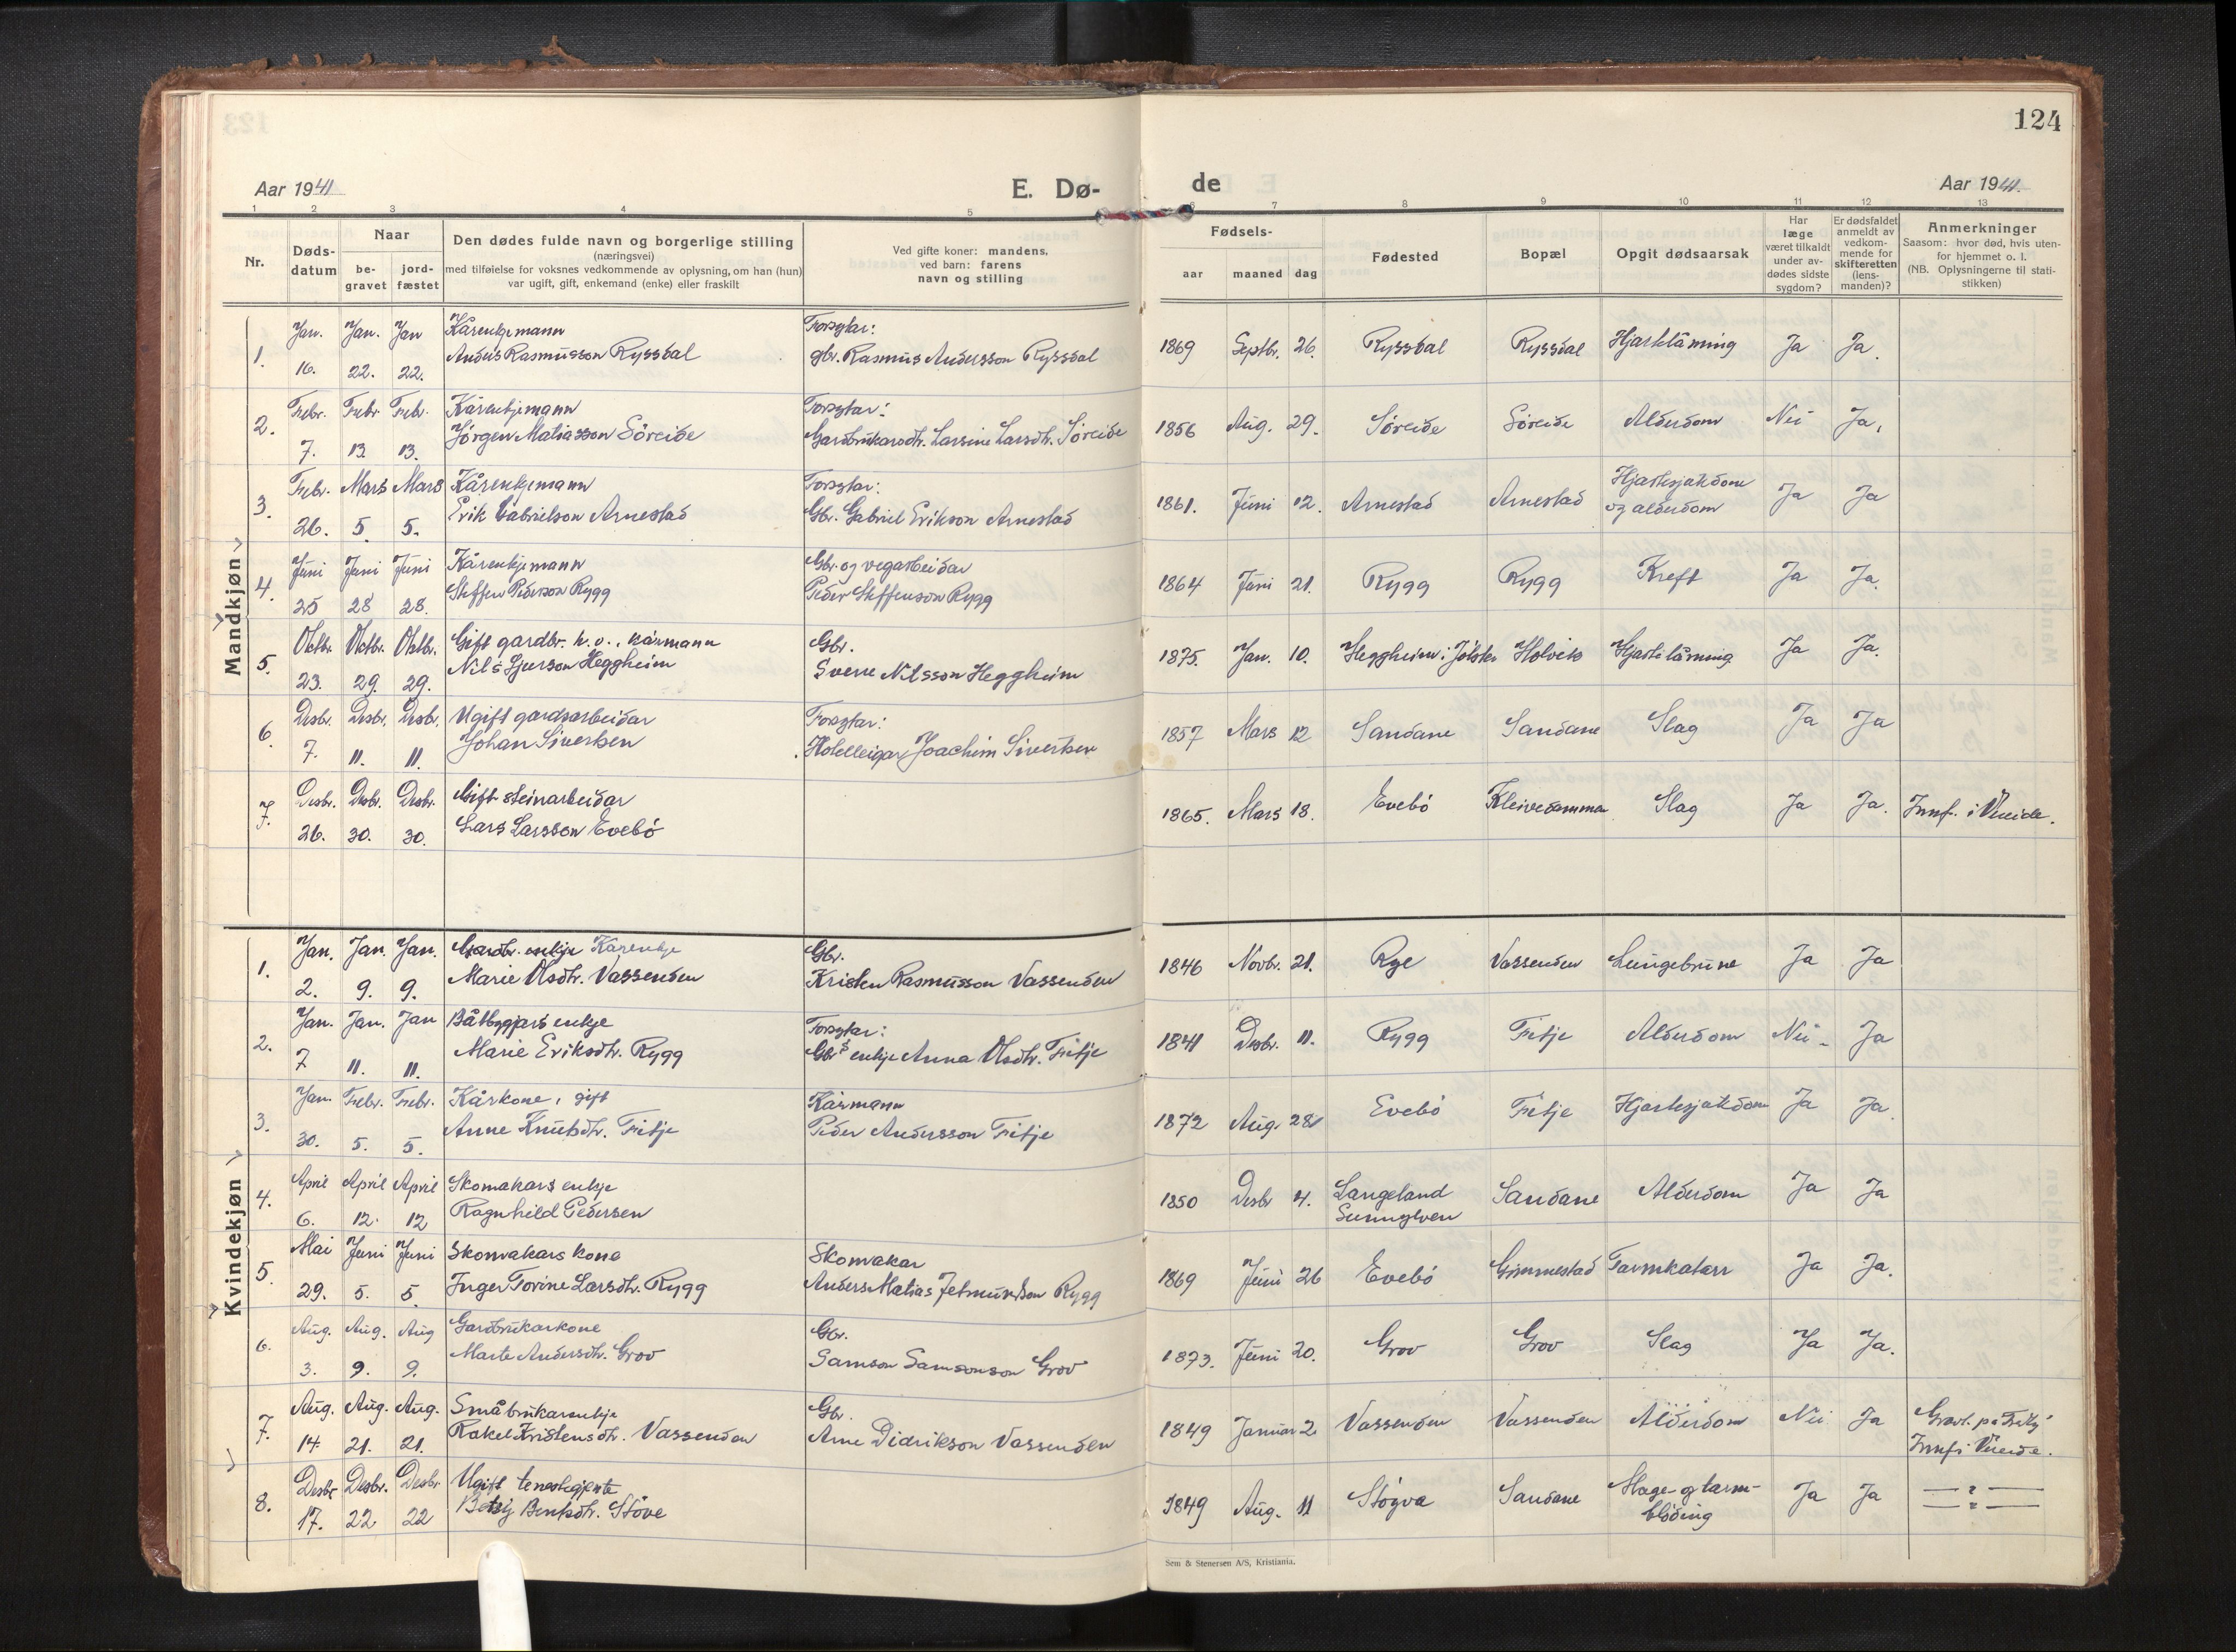 124
Aar 1941
E. Dø-
de
Aar 1941.
1 2 3 4 5 6 7 8 9 10 11 12 13
Nr.
Døds-
datum
Naar
be-
gravet
jord-
fæstet
Den dødes fulde navn og borgerlige stilling
(næringsvei)
med tilføielse for voksnes vedkommende av oplysning, om han (hun)
var ugift, gift, enkemand (enke) eller fraskilt
Ved gifte koner: mandens,
ved barn: farens
navn og stilling
Fødsels-
aar maaned dag
Fødested
Bopæl
Opgit dødsaarsak
Har
læge
været tilkaldt
under av-
dødes sidste
sygdom?
Er dødsfaldet
anmeldt av
vedkom-
mende for
skifteretten
(lens-
manden)?
Anmerkninger
Saasom: hvor død, hvis uten-
for hjemmet o. l.
(NB. Oplysningerne til stati-
stikken)
Mandkjøn
1. Jan. Jan. Jan Kårenkjemann Forsytar:
16. 22. 22. Anders Rasmusson Ryssdal gbr. Rasmus Andersson Ryssdal 1869 Septbr. 26. Ryssdal Ryssdal Hjartelåming Ja Ja.
2. Febr. Febr. Febr. Kårenkjemann Forsytar:
7. 13. 13. Jörgen Matiasson Söreide Gardbrukarsdtr. Larsine Larsdtr. Söreide 1856 Aug. 29. Söreide Söreide Alderdom Nei Ja.
3. Febr. Mars Mars Kårenkjemann Forsytar:
26. 5. 5. Erik Gabrielson Arnestad Gbr. Gabriel Erikson Arnestad 1861. Juni 12. Arnestad Arnestad Hjartesjukdom
og alderdom Ja Ja
4. Juni Juni Juni Kårenkjemann Gbr. og vegarbeidar
25 28 28. Steffen Pederson Rygg Peder Steffenson Rygg 1864 Juni 21. Rygg Rygg Kreft Ja Ja.
5. Oktbr. Oktbr. Oktbr. Gift gardbr. h.v., kårmann Gbr.
23. 29. 29. Nils Sjurson Heggheim Sverre Nilsson Heggheim 1875. Jan. 10. Heggheim i Jölster Holvik Hjartelåming Ja Ja.
6. Desbr. Desbr. Desbr. Ugift gardsarbeidar Forsytar:
7. 11. 11. Johan Sivertsen Hotelleigar Joachim Sivertsen 1857 Mars 12 Sandane Sandane Slag Ja Ja
7. Desbr. Desbr. Desbr. Gift steinarbeidar
26. 30. 30. Lars Larsson Evebö 1865. Mars 18. Evebö Slag Ja Ja. Innf. i Vereide.
Kvindekjøn
1. Jan. Jan. Jan. Gardbr. enkje Kårenkje Gbr.
2. 9. 9. Marie Olsdtr. Vassenden Kristen Rasmusson Vassenden 1846 Novbr. 21. Rye Vassenden Lungebrune Ja Ja
2. Jan. Jan. Jan Båtbyggjars enkje Forsytar:
7 11. 11. Marie Eriksdtr. Rygg Gbrs enkje Anna Olsdtr. Fitje 1841 Desbr. 11. Rygg Fitje Alderdom Nei Ja
3. Jan. Febr. Febr. Kårkone, gift Kårmann
30. 5. 5. Anne Knutsdtr. Fitje Peder Andersson Fitje 1872 Aug. 28 Evebö Fitje Hjartesjukdom Ja Ja.
4. April April April Skomakars enkje
6. 12. 12 Ragnhild Pedersen 1850 Desbr 4. Langeland
Sunnylven Sandane Alderdom Ja Ja
5. Mai Juni Juni Skomakars kone Skomakar
29. 5. 5. Inger Torine Larsdtr. Rygg Anders Matias Jetmundson Rygg 1869 Juni 26 Evebö Gimmestad Tarmkatarr Ja Ja.
6. Aug. Aug. Aug Gardbrukarkone Gbr.
3. 9. 9. Marte Andersdtr. Grov Samson Samsonson Grov 1873. Juni 20. Grov Grov Slag Ja Ja.
7. Aug. Aug. Aug. Småbrukarenkje Gbr.
14. 21. 21. Rakel Kristensdtr. Vassenden Arne Didrikson Vassenden 1849 Januar 2 Vassenden Vassenden Alderdom Nei Ja Innf. i Vereide.
8. Desbr Desbr. Desbr Ugift tenestegjente
17. 22. 22 Betsy Bentsdtr. Störe 1849 Aug. 11 Sandane Mage- og tarm-
blöding Ja Ja — " —
— " —
Sem & Stenersen A/S, Kristiania.